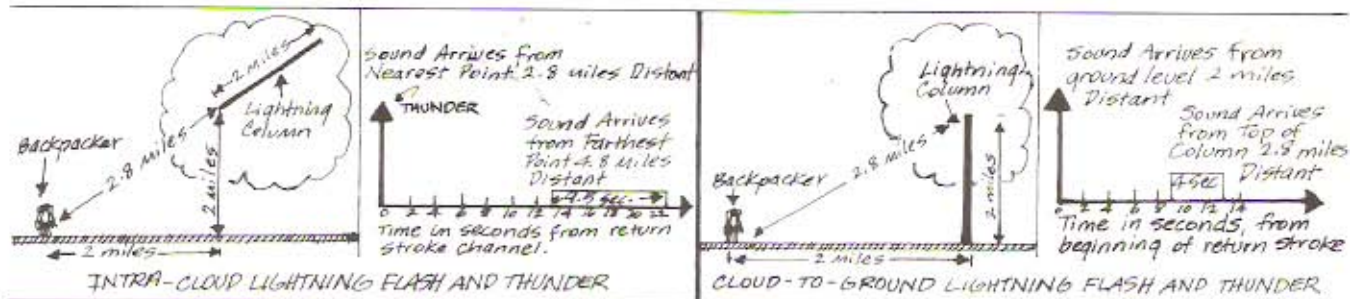 2 miles
Lightning
Column
Backpacker
2.8 miles
2 miles
2 miles
Sound Arrives from
Nearest Point 2.8 miles Distant
THUNDER
Sound Arrives
from Farthest
Point 4.8 Miles
Distant
0 2 4 6 8 10 12 14 16 18 20 22
Time in seconds from return
stroke channel.
INTRA-CLOUD LIGHTNING FLASH AND THUNDER
Lightning
Column
Backpacker
2.8 miles
2 miles
2 MILES
Sound Arrives from
ground level 2 miles
Distant
Sound Arrives
from Top of
Column 2.8 miles
Distant
4 sec
0 2 4 6 8 10 12 14
Time in seconds, from
beginning of return stroke
CLOUD-TO-GROUND LIGHTNING FLASH AND THUNDER